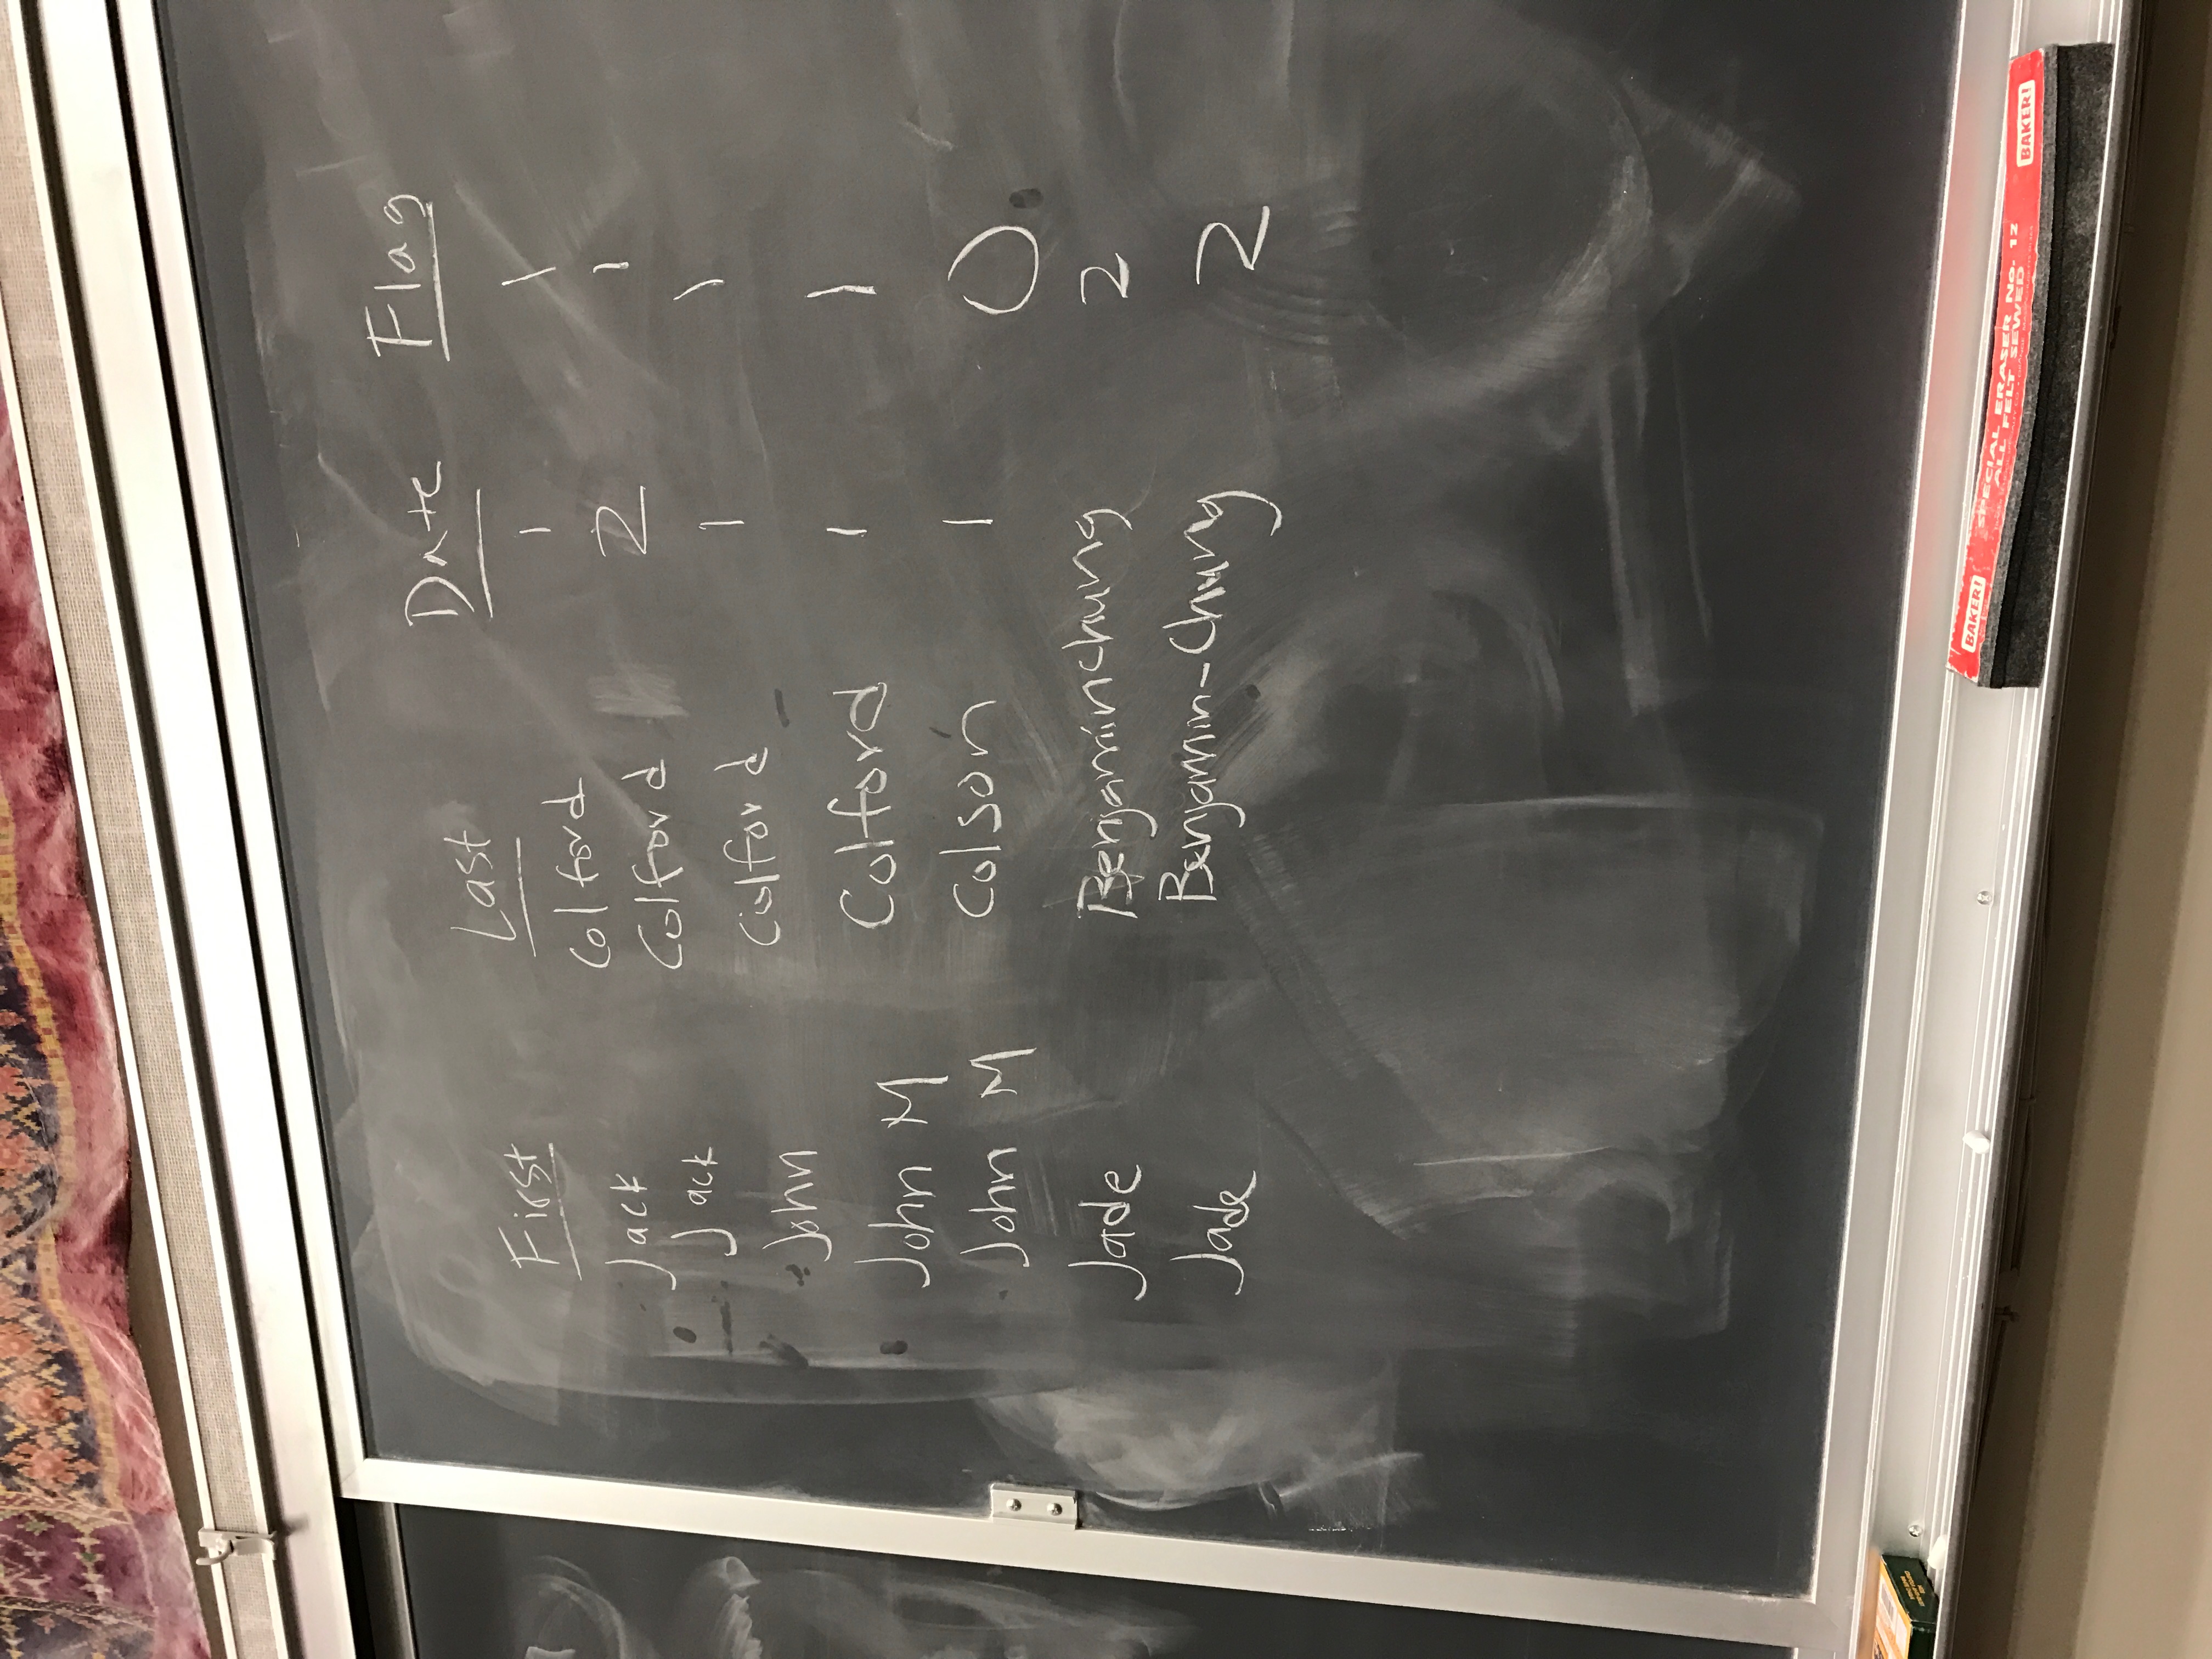 First Last Date Flag
Jack Colford 1 1
Jack Colford 2 1
John Colford 1 1
John M Colford 1 1
John M Colson 1 0
Jade Benjaminchung 2
Jade Benjamin-Chung 2
BAKER! SPECIAL ERASER No. 12 BAKER!
ALL FELT SEWED